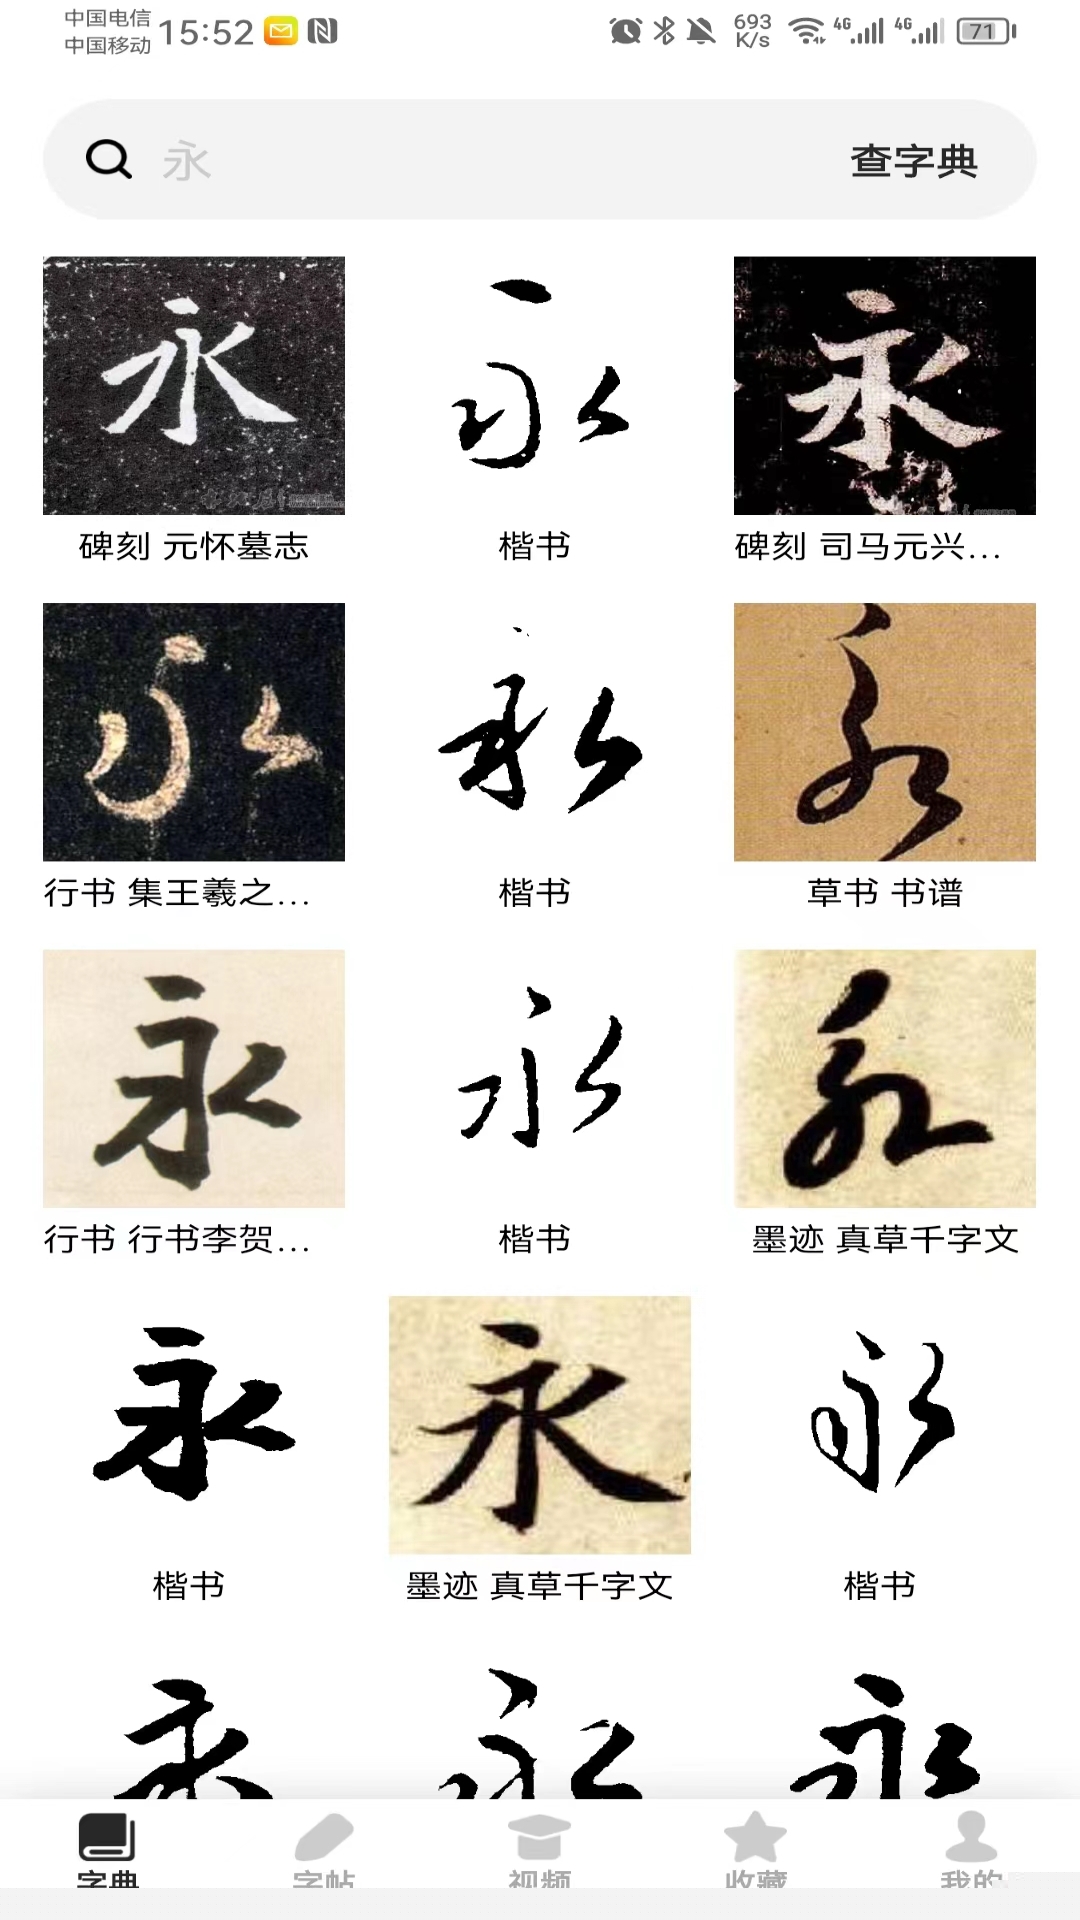 中国电信
中国移动
15:52
693
K/s
4G
4G
71
永
查字典
永
永
永
碑刻 元怀墓志
楷书
碑刻 司马元兴...
永
永
永
行书 集王羲之...
楷书
草书 书谱
永
永
永
行书 行书李贺...
楷书
墨迹 真草千字文
永
永
永
楷书
墨迹 真草千字文
楷书
永
永
永
字典
字帖
视频
收藏
我的